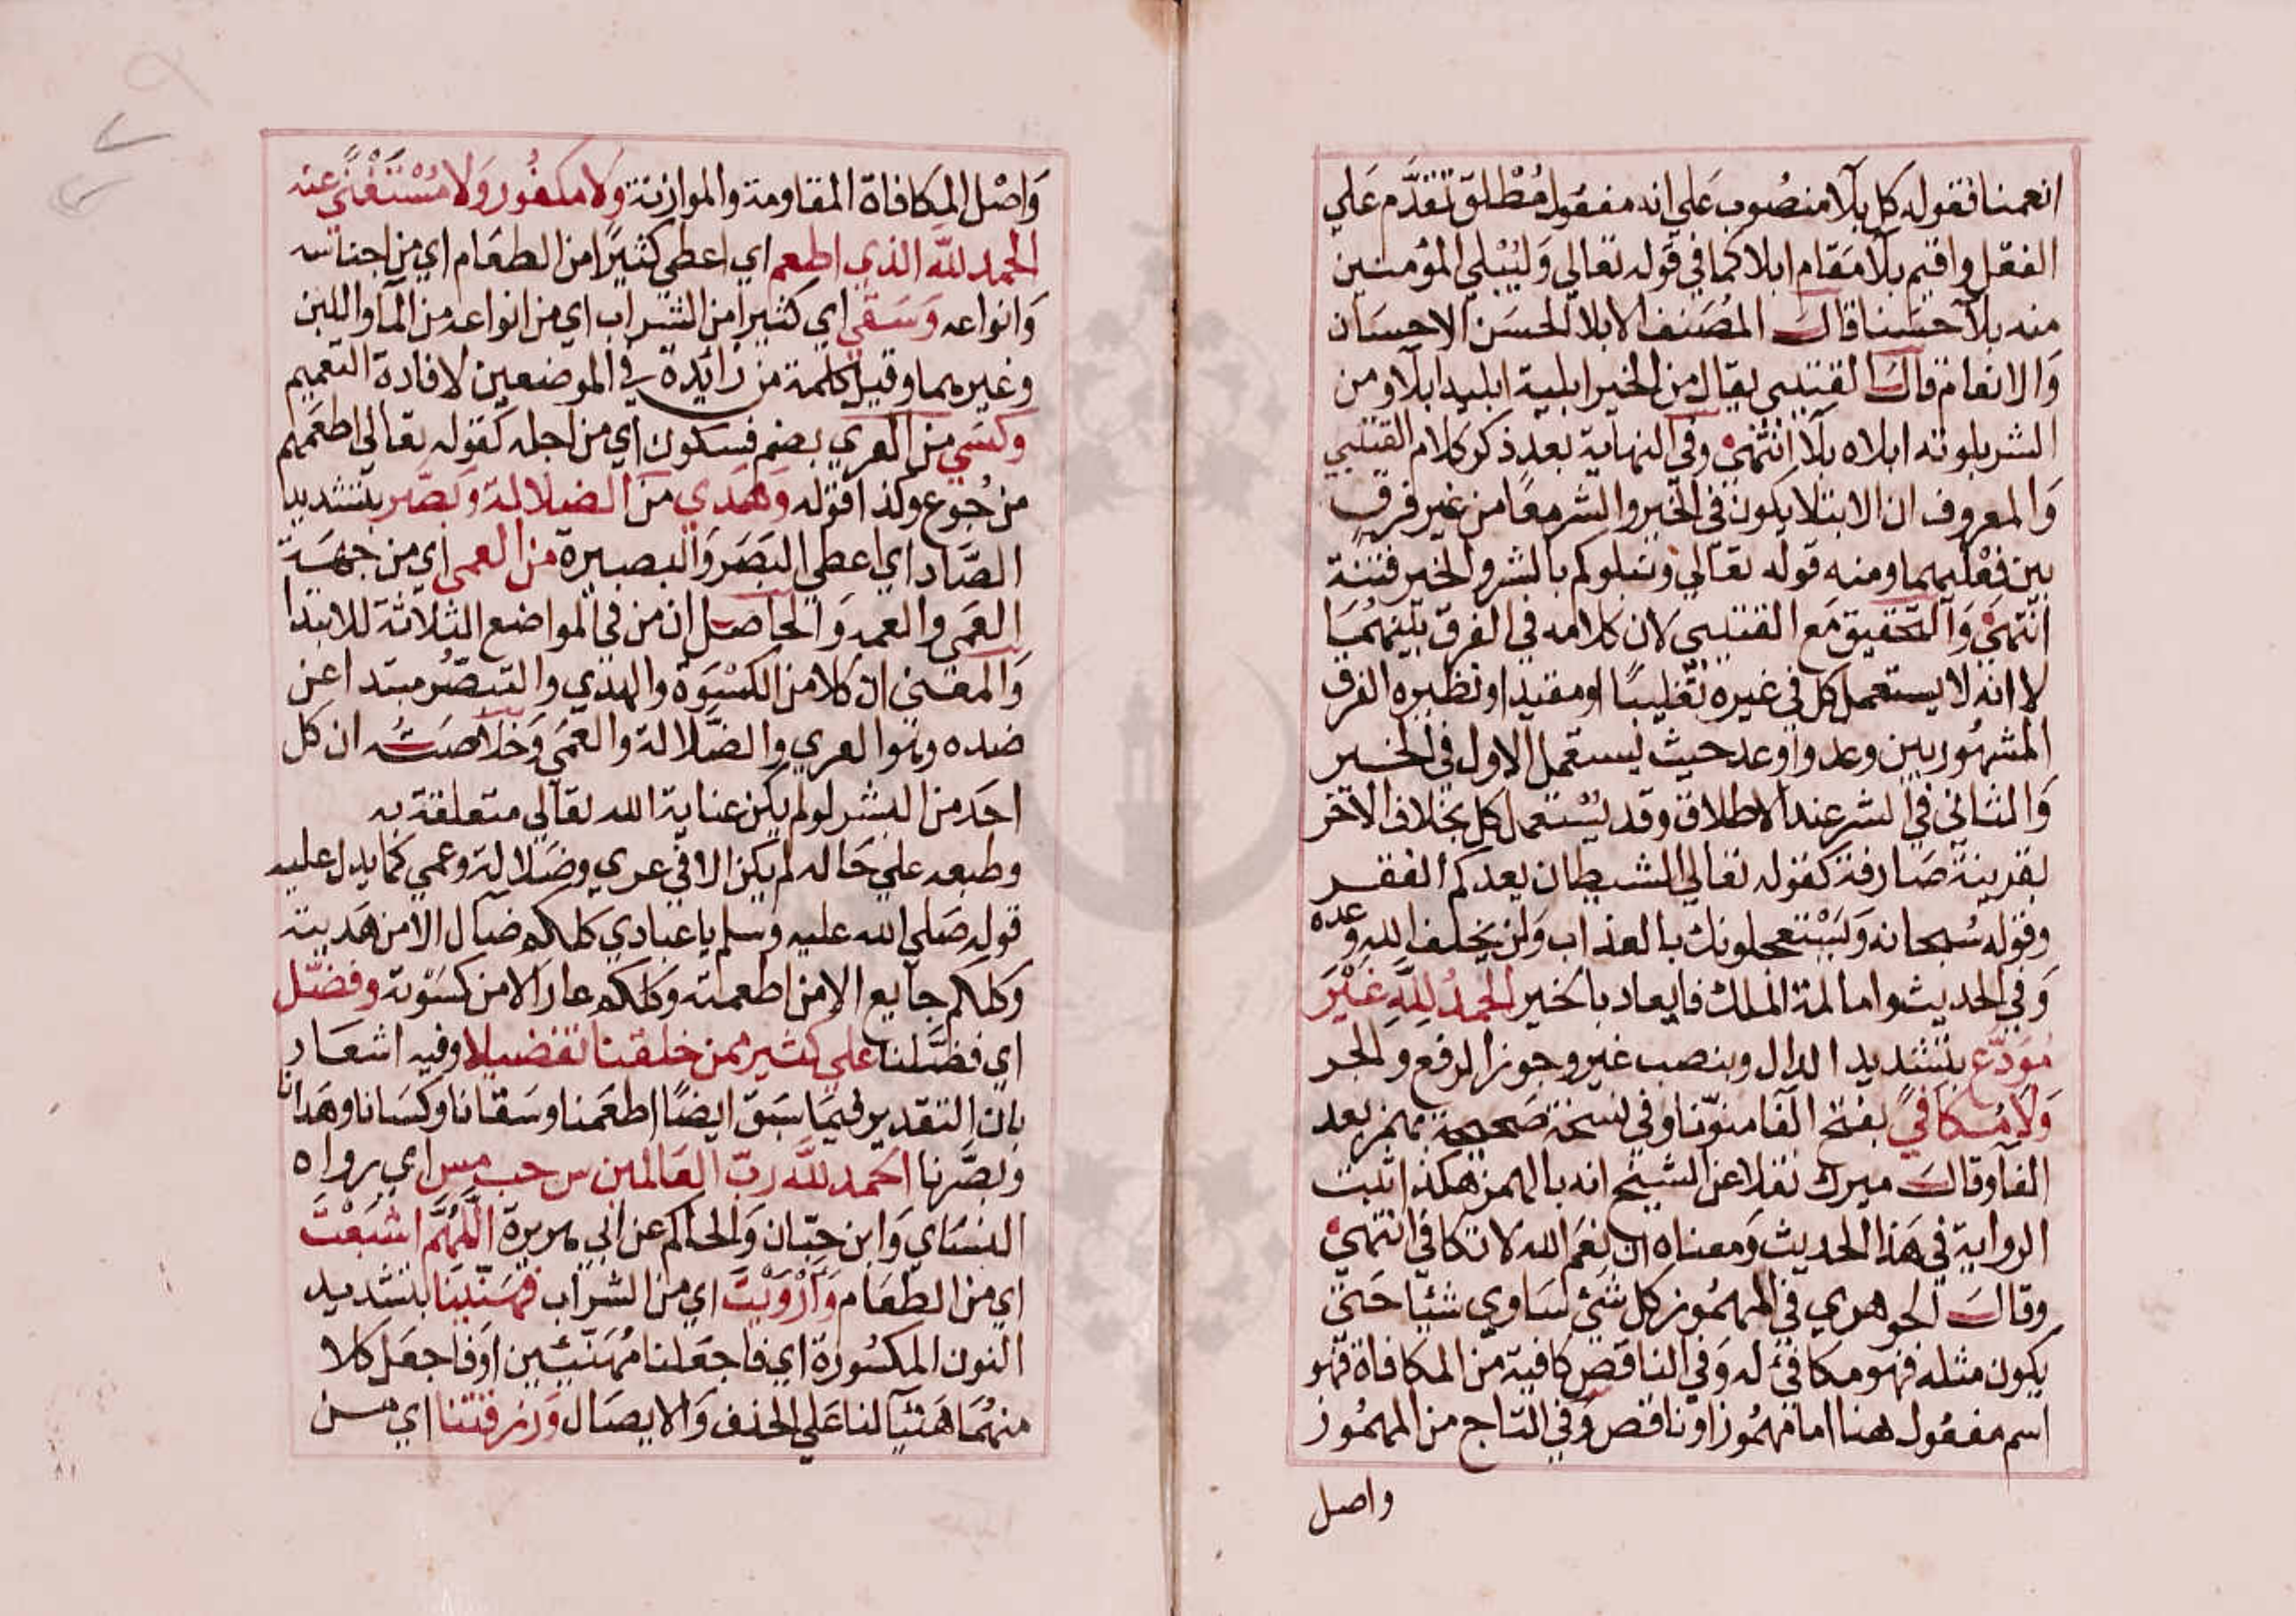 انعمنا فقوله كل بلاء منصوب علي انه مفعول مطلق تقدم علي
الفعل واقيم بلاء مقام ابلاء كما في قوله تعالي وليبلي المؤمنين
منه بلاء حسنا قال المصنف الابلاء الحسن الاحسان
والانعام قال القتيبي يقال من الخير ابليته ابليه ابلاء ومن
الشر بلوته ابلاه بلاء انتهي وفي النهاية بعد ذكر كلام القتيبي
والمعروف ان الابتلا يكون في الخير والشر معا من غير فرق
بين فعليهما ومنه قوله تعالي ونبلوكم بالشر والخير فتنة
انتهي والتحقيق مع القتيبي لان كلامه في الفرق بينهما
لا انه لا يستعمل كل في غيره تغليبا او مقيدا ونظيره الفرق
المشهور بين وعد واوعد حيث يستعمل الاول في الخير
والثاني في الشر عند الاطلاق وقد يستعمل كل بخلاف الآخر
بقرينة صارفة كقوله تعالي الشيطان يعدكم الفقر
وقوله سبحانه ويستعجلونك بالعذاب ولن يخلف الله وعده
وفي الحديث واما لمة الملك فايعاد بالخير الحمد لله غير
مودع بتشديد الدال وبنصب غير وجوز الرفع والجر
ولا مكافئ بفتح الفا منونا وفي نسخة صحيحة بهمز بعد
الفا وقال ميرك نقلا عن الشيخ انه بالهمز هكذا اثبت
الرواية في هذا الحديث ومعناه ان نعم الله لا تكافي انتهي
وقال الجوهري في المهموز كل شئ ساوي شيئا حتي
يكون مثله فهو مكافئ له وفي الناقص كافيته من المكافاة فهو
اسم مفعول هنا اما مهموز او ناقص وفي التاج من المهموز
واصل
واصل المكافاة المقاومة والموازنة ولا مكفور ولا مستغني عنه
الحمد لله الذي اطعم اي اعطي كثيرا من الطعام اي من اجناسه
وانواعه وسقي اي كثيرا من الشراب اي من انواعه من الماء واللبن
وغيرهما وقيل كلمة من زائدة في الموضعين لافادة التعميم
وكسي من العري بضم فسكون اي من اجله كقوله تعالي اطعمهم
من جوع وكذا قوله وهدي من الضلالة وبصر بتشديد
الصاد اي اعطي البصر والبصيرة من العمي اي من جهة
العمي والعمه والحاصل ان من في المواضع الثلاثة للابتدا
والمعني ان كلا من الكسوة والهدي والتبصر مبتدا عن
ضده وهو العري والضلالة والعمي وخلاصته ان كل
احد من البشر لو لم يكن عناية الله تعالي متعلقة به
وطبعه علي حاله لم يكن الا في عري وضلالة وعمي كما يدل عليه
قوله صلي الله عليه وسلم يا عبادي كلكم ضال الا من هديته
وكلكم جايع الا من اطعمته وكلكم عار الا من كسوته وفضل
اي فضلنا علي كثير ممن خلقنا تفضيلا وفيه اشعار
بان التقدير فيما سبق ايضا اطعمنا وسقانا وكسانا وهدانا
وبصرنا الحمد لله رب العالمين س حب مس اي رواه
النساي وابن حبان والحاكم عن ابي هريرة اللهم اشبعت
اي من الطعام وأرويت اي من الشراب فهنينا بتشديد
النون المكسورة اي فاجعلنا مهنئين او فاجعل كلا
منهما هنيئا لنا علي الحذف والايصال ورزقتنا اي من